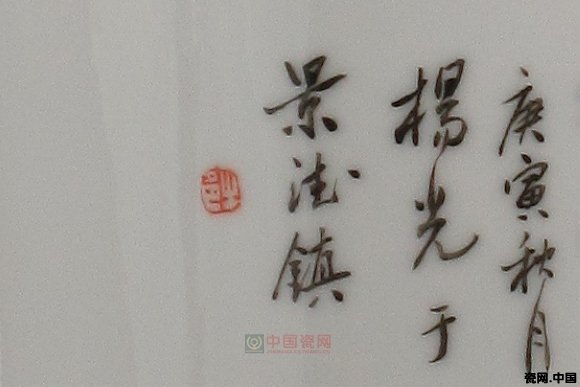 庚寅秋月
楊光于
景德鎮
中国瓷网
瓷网.中国